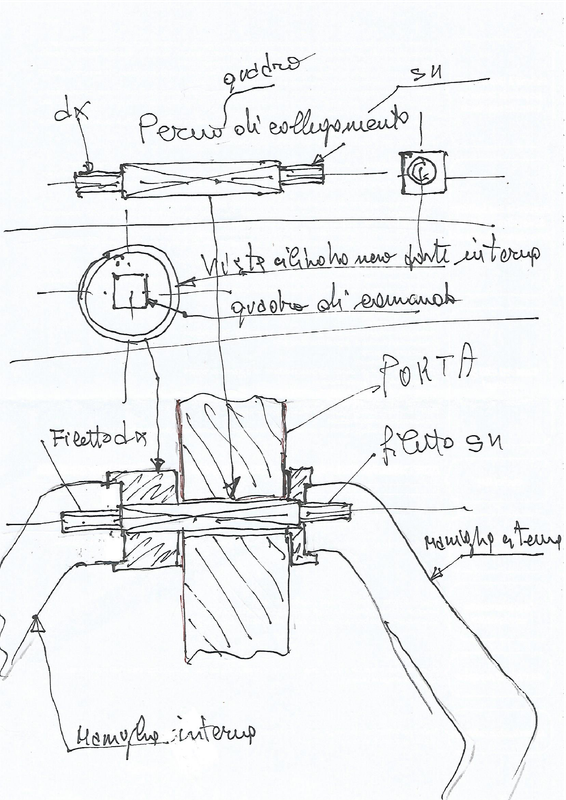 quadro
sn
dx
Perno di collegamento
Vista cilindro nero parte interna
quadro di comando
PORTA
Filetto dx
filetto sn
maniglia esterna
maniglia interna